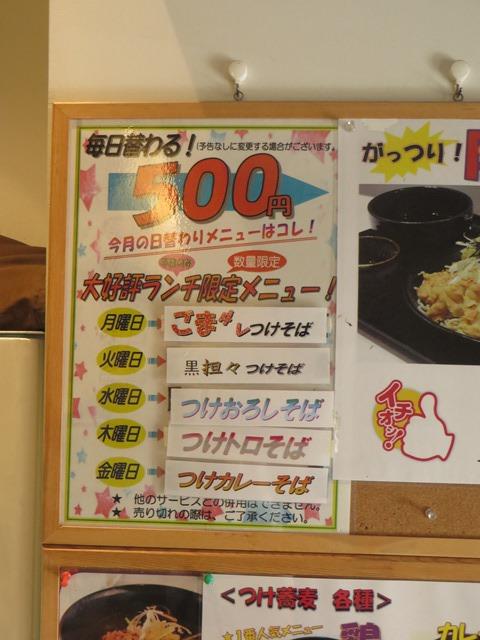 毎日替わる！(予告なしに変更する場合がございます。
500円
今月の日替わりメニューはコレ！
数量限定
大好評ランチ限定メニュー！
月曜日 ごまダレつけそば
火曜日 黒担々つけそば
水曜日 つけおろしそば
木曜日 つけトロそば
金曜日 つけカレーそば
★ 他のサービスとの併用はできません。
★ 売り切れの際は、ご了承ください。
がっつり！
イチオシ！
＜つけ蕎麦 各種＞
★1番人気メニュー
鶏
カレ